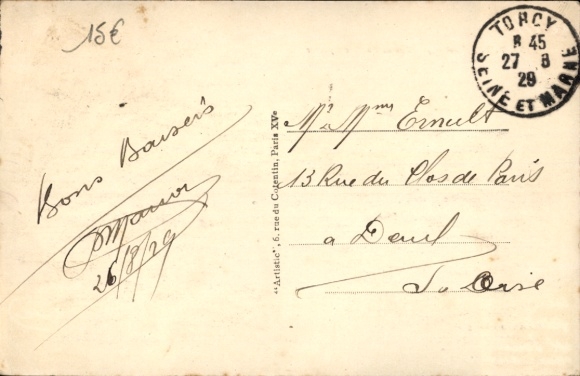 15€
TORCY
8 45
27 8
29
SEINE ET MARNE
Bons Baisers
26/8/29
"Artistic", 6, rue du Cotentin, Paris XVe
Mr & Mme Ernult
13 Rue du Clos de Paris
a Deuil
S & Oise